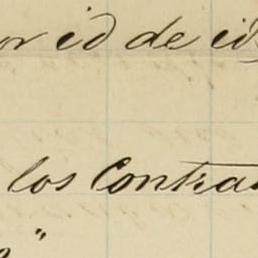 or id de id
los Contra